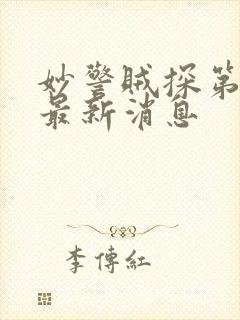 妙警贼探第
最新消息
李傳紅